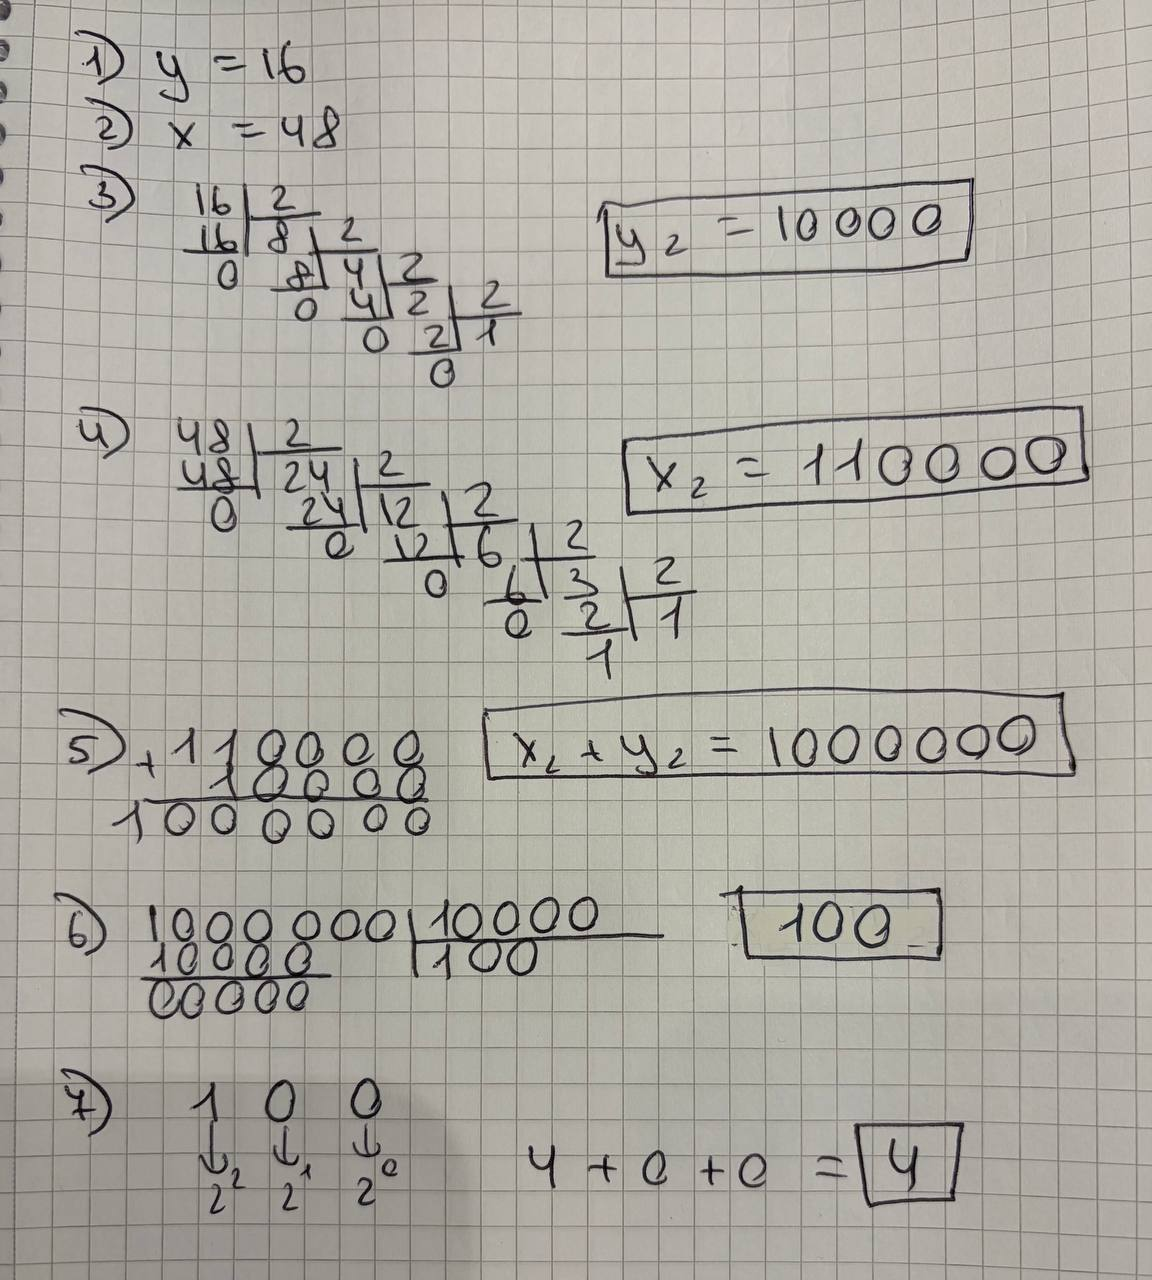 1) y = 16
2) x = 48
3) 16 2
16 8 2
0 8 4 2
0 4 2 2
0 2 1
0
y₂ = 10000
4) 48 2
48 24 2
0 24 12 2
0 12 6 2
0 6 3 2
0 2 1
1
x₂ = 110000
5) + 110000
10000
1000000
x₂ + y₂ = 1000000
6) 1000000 10000
10000 100
00000
100
7) 1 0 0
↓ ↓ ↓
2² 2¹ 2⁰
4 + 0 + 0 = 4